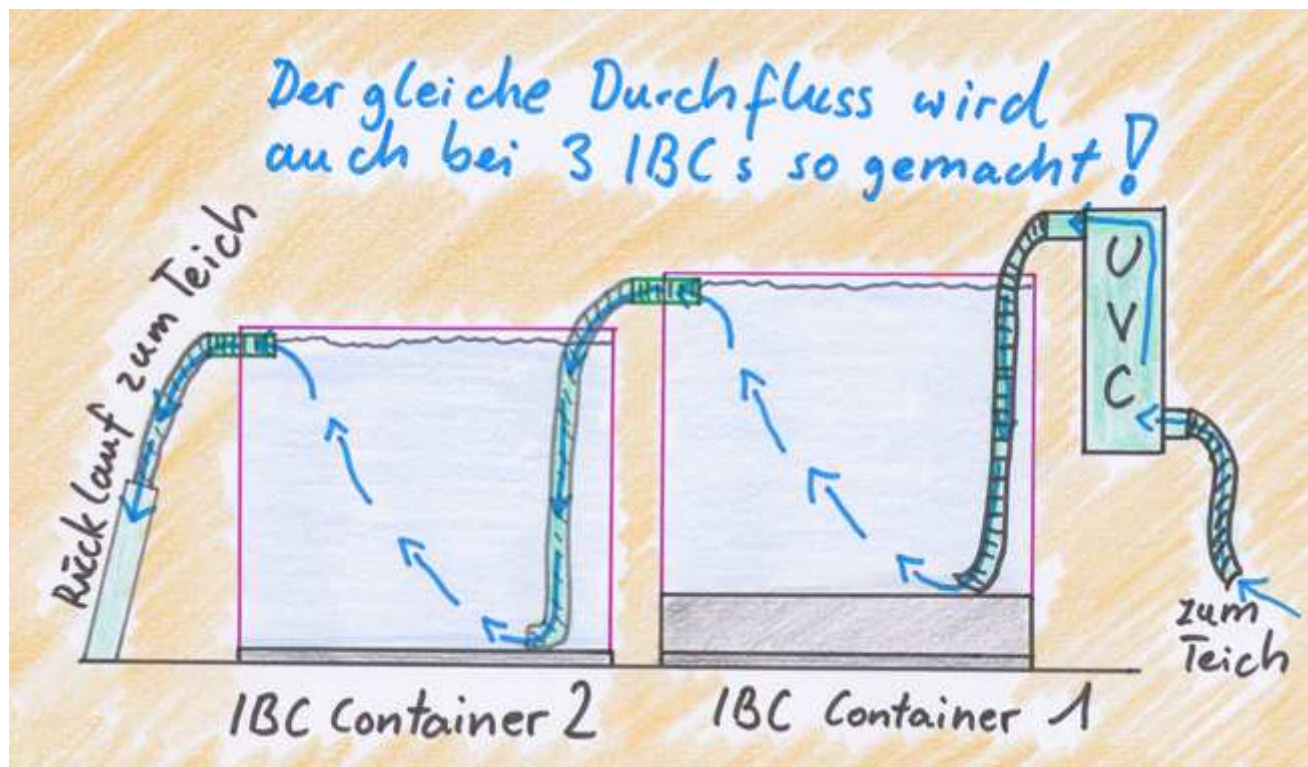 Der gleiche Durchfluss wird
auch bei 3 IBCs so gemacht!
Rücklauf zum Teich
UVC
zum
Teich
IBC Container 2
IBC Container 1